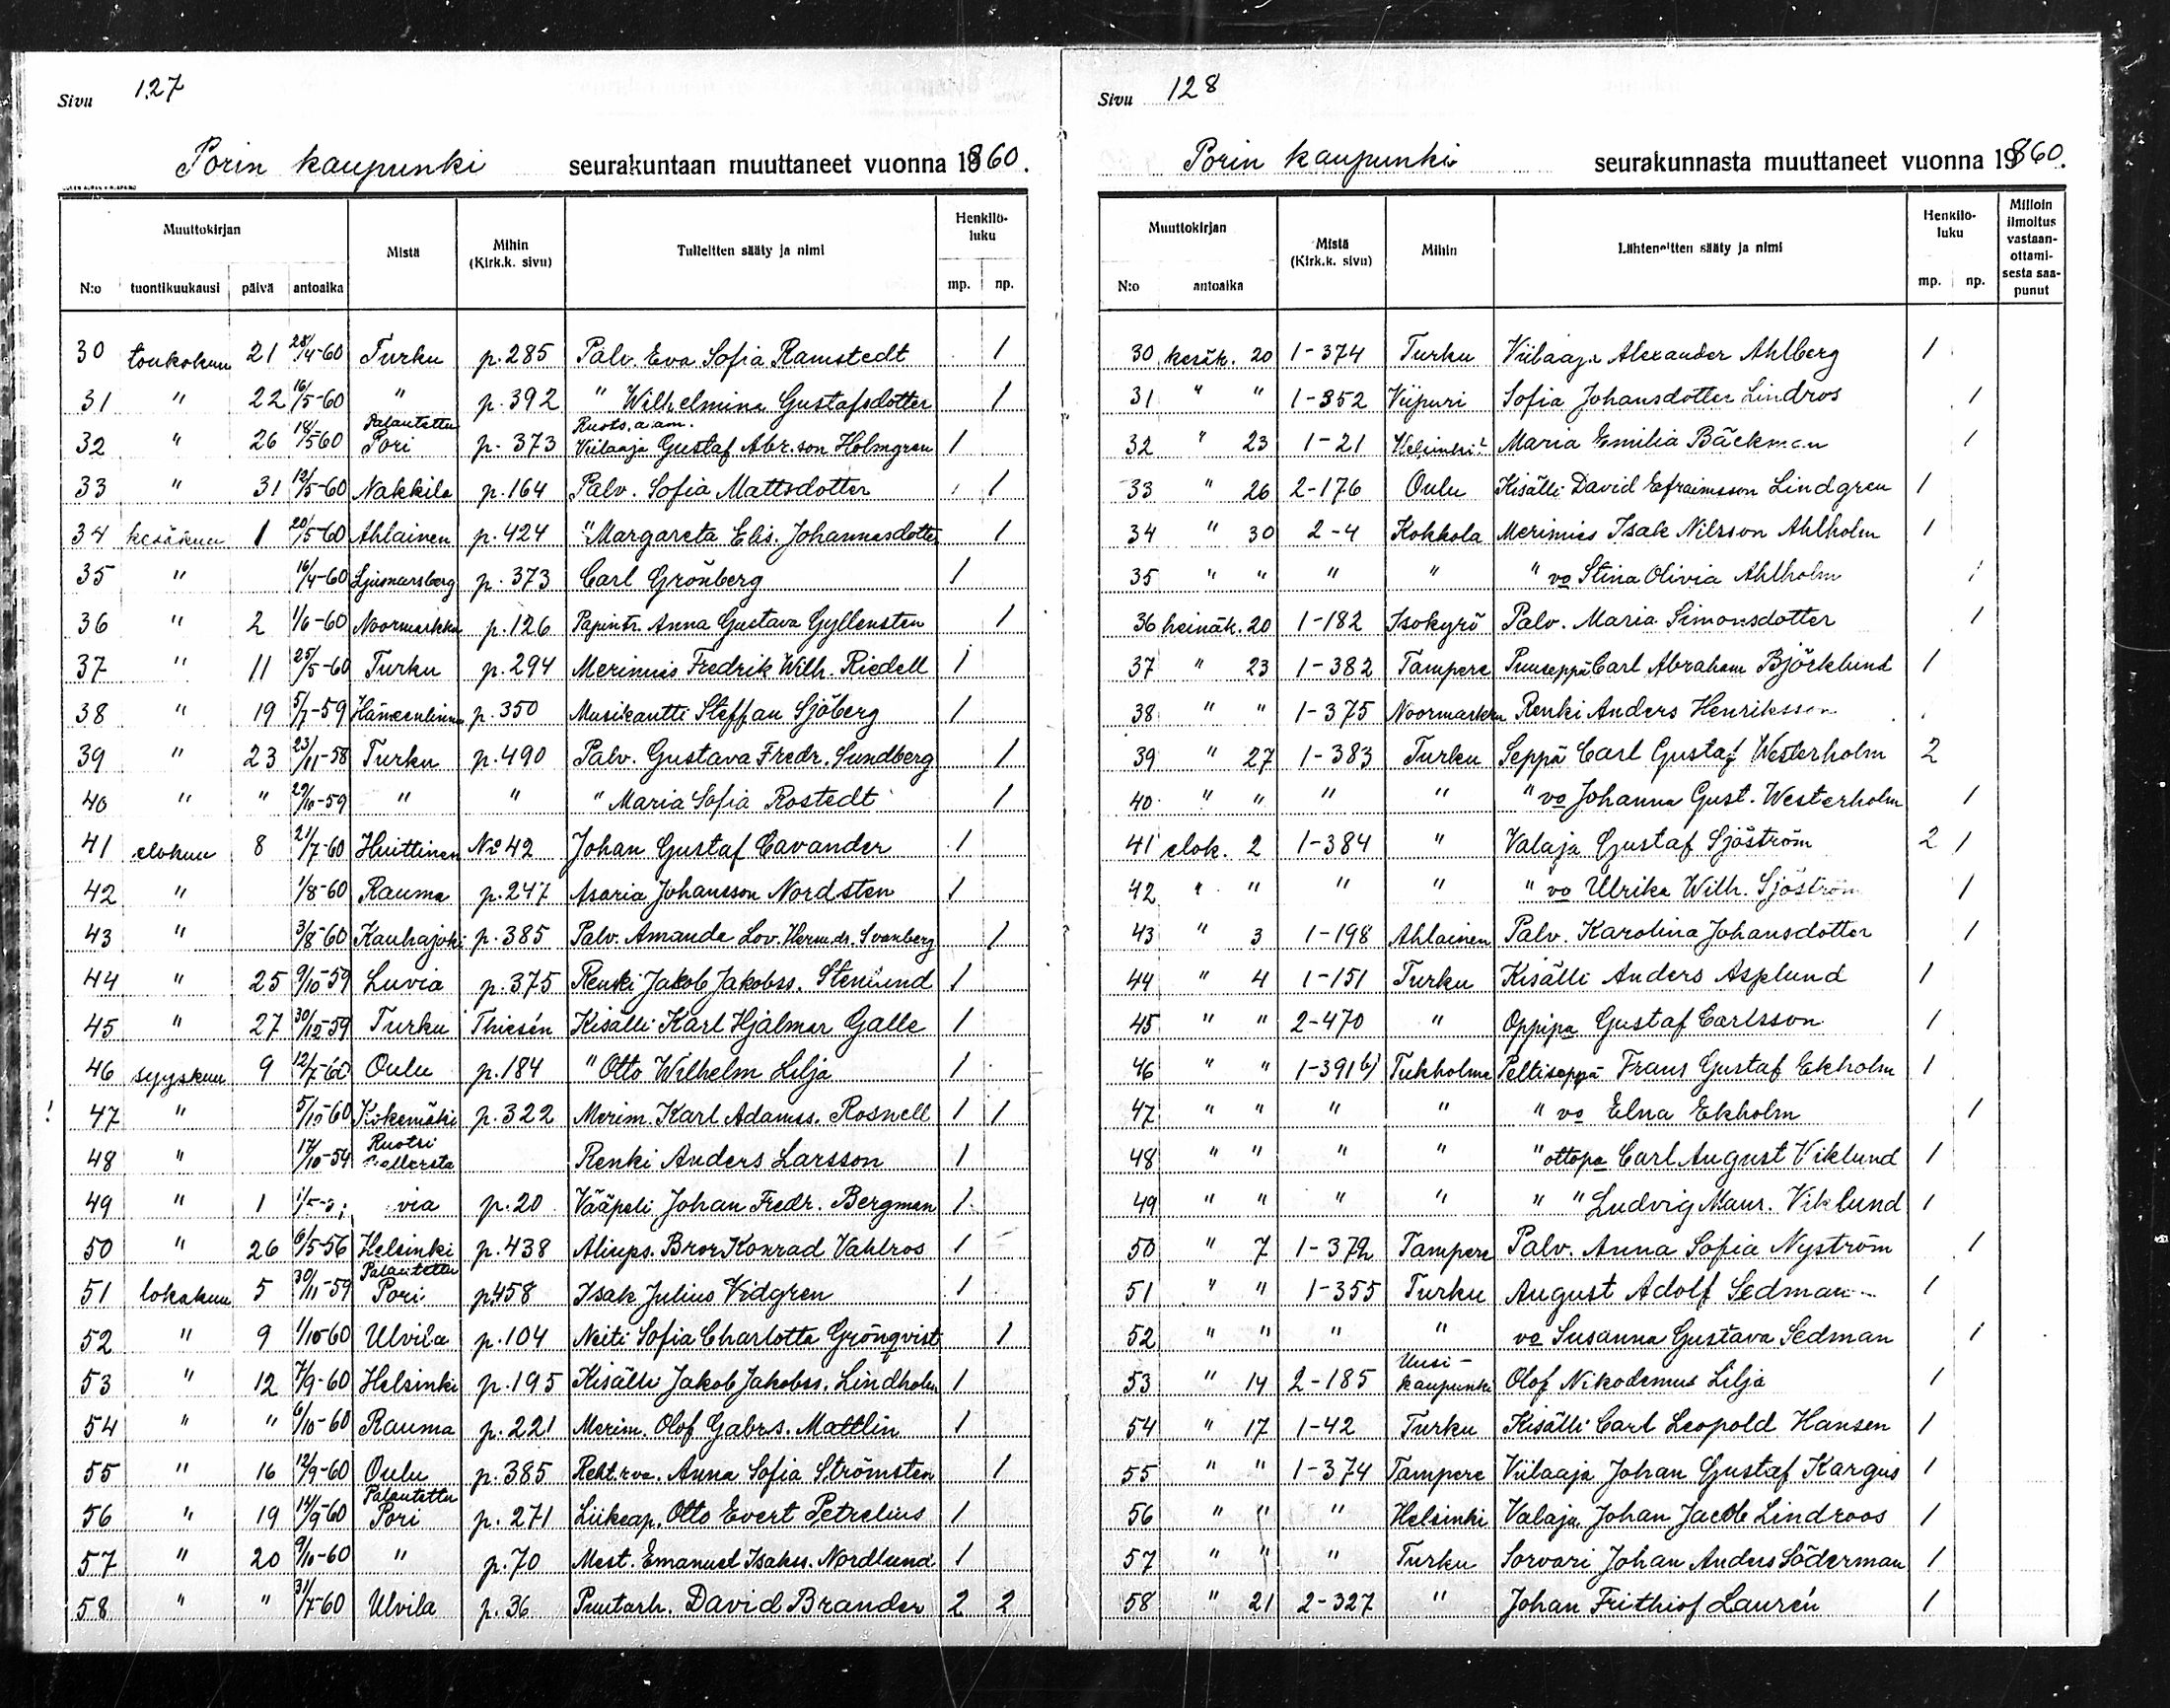 Sivu 127
Porin kaupunki seurakuntaan muuttaneet vuonna 1860.
Muuttokirjan Mistä Mihin (Kirk.k. sivu) Tulleitten sääty ja nimi Henkilö-luku
N:o tuontikuukausi päivä antoaika mp. np.
30 toukokuu 21 28/4-60 Turku p. 285 Palv. Eva Sofia Ramstedt 1
31 " 22 16/5-60 " p. 392 " Wilhelmina Gustafsdotter 1
Palautettu Ruots. a. am.
32 " 26 18/5-60 Pori p. 373 Viilaaja Gustaf Abr.son Holmgren 1
33 " 31 12/5-60 Nakkila p. 164 Palv. Sofia Mattsdotter 1
34 kesäkuu 1 20/5-60 Ahlainen p. 424 " Margareta Elis. Johannesdotter 1
35 " 16/4-60 Ljusnarsberg p. 373 Carl Grönberg 1
36 " 2 1/6-60 Noormarkku p. 126 Papintr. Anna Gustava Gyllensten 1
37 " 11 25/5-60 Turku p. 294 Merimies Fredrik Wilh. Riedell 1
38 " 19 5/7-59 Hämeenlinna p. 350 Musikantti Steffan Sjöberg 1
39 " 23 23/11-58 Turku p. 490 Palv. Gustava Fredr. Sundberg 1
40 " " 29/10-59 " " " Maria Sofia Rostedt 1
41 elokuu 8 21/7-60 Huittinen No 42 Johan Gustaf Cavander 1
42 " 1/8-60 Rauma p. 247 Asaria Johansson Nordsten 1
43 " 3/8-60 Kauhajoki p. 385 Palv. Amanda Lov. Herm.dr. Svanberg 1
44 " 25 9/10-59 Luvia p. 375 Renki Jakob Jakobss. Stenlund 1
45 " 27 30/12-59 Turku Thiesén Kisälli Karl Hjalmar Galle 1
46 syyskuu 9 12/7-60 Oulu p. 184 " Otto Wilhelm Lilja 1
! 47 " 5/10-60 Kokemäki p. 322 Merim. Karl Adamss. Rosnell 1 1
Ruotsi
48 " 17/10-54 Renki Anders Larsson 1
49 " 1 via p. 20 Vääpeli Johan Fredr. Bergman 1
50 " 26 6/5-56 Helsinki p. 438 Aliups. Bror Konrad Vahlros 1
Palautettu
51 lokakuu 5 30/11-59 Pori p458 Isak Julius Vidgren 1
52 " 9 1/10-60 Ulvila p. 104 Neiti Sofia Charlotta Grönqvist 1
53 " 12 7/9-60 Helsinki p. 195 Kisälli Jakob Jakobss. Lindholm 1
54 " " 6/10-60 Rauma p. 221 Merim. Olof Gabr.s. Mattlin 1
55 " 16 12/9-60 Oulu p. 385 Reht. rva. Anna Sofia Strömsten 1
Palautettu
56 " 19 14/9-60 Pori p. 271 Liikeap. Otto Evert Petrelius 1
57 " 20 9/10-60 " p. 70 Mest. Emanuel Isakss. Nordlund 1
58 " " 31/7-60 Ulvila p. 36 Puutarh. David Brander 2 2
Sivu 128
Porin kaupunki seurakunnasta muuttaneet vuonna 19860.
Muuttokirjan Mistä (Kirk.k. sivu) Mihin Lähteneitten sääty ja nimi Henkilö-luku Milloin ilmoitus vastaan-ottami-sesta saa-punut
N:o antoaika mp. np.
30 kesäk. 20 1-374 Turku Viilaaja Alexander Ahlberg 1
31 " " 1-352 Viipuri Sofia Johansdotter Lindros 1
32 " 23 1-21 Helsinki Maria Emilia Bäckman 1
33 " 26 2-176 Oulu Kisälli David Efraimsson Lindgren 1
34 " 30 2-4 Kokkola Merimies Isak Nilsson Ahlholm 1
35 " " " " " vo Stina Olivia Ahlholm 1
36 heinäk. 20 1-182 Isokyrö Palv. Maria Simonsdotter 1
37 " 23 1-382 Tampere Puuseppä Carl Abraham Björklund 1
38 " " 1-375 Noormarkku Renki Anders Henriksson
39 " 27 1-383 Turku Seppä Carl Gustaf Westerholm 2
40 " " " " " vo Johanna Gust. Westerholm 1
41 elok. 2 1-384 " Valaja Gustaf Sjöström 2 1
42 " " " " " vo Ulrika Wilh. Sjöström 1
43 " 3 1-198 Ahlainen Palv. Karolina Johansdotter 1
44 " 4 1-151 Turku Kisälli Anders Asplund 1
45 " " 2-470 " Oppipa Gustaf Carlsson 1
46 " " 1-391 b) Tukholma Peltiseppä Frans Gustaf Ekholm 1
47 " " " " " vo Elna Ekholm 1
48 " " " " " ottopa Carl August Viklund 1
49 " " " " " " Ludvig Maur. Viklund 1
50 " 7 1-372 Tampere Palv. Anna Sofia Nyström 1
51 " " 1-355 Turku August Adolf Sedman 1
52 " " " " vo Susanna Gustava Sedman 1
53 " 14 2-185 Uusi-kaupunki Olof Nikodemus Lilja 1
54 " 17 1-42 Turku Kisälli Carl Leopold Hansen 1
55 " " 1-374 Tampere Viilaaja Johan Gustaf Kargus 1
56 " " " Helsinki Valaja Johan Jacob Lindroos 1
57 " " " Turku Sorvari Johan Anders Söderman 1
58 " 21 2-327 " Johan Frithiof Laurén 1